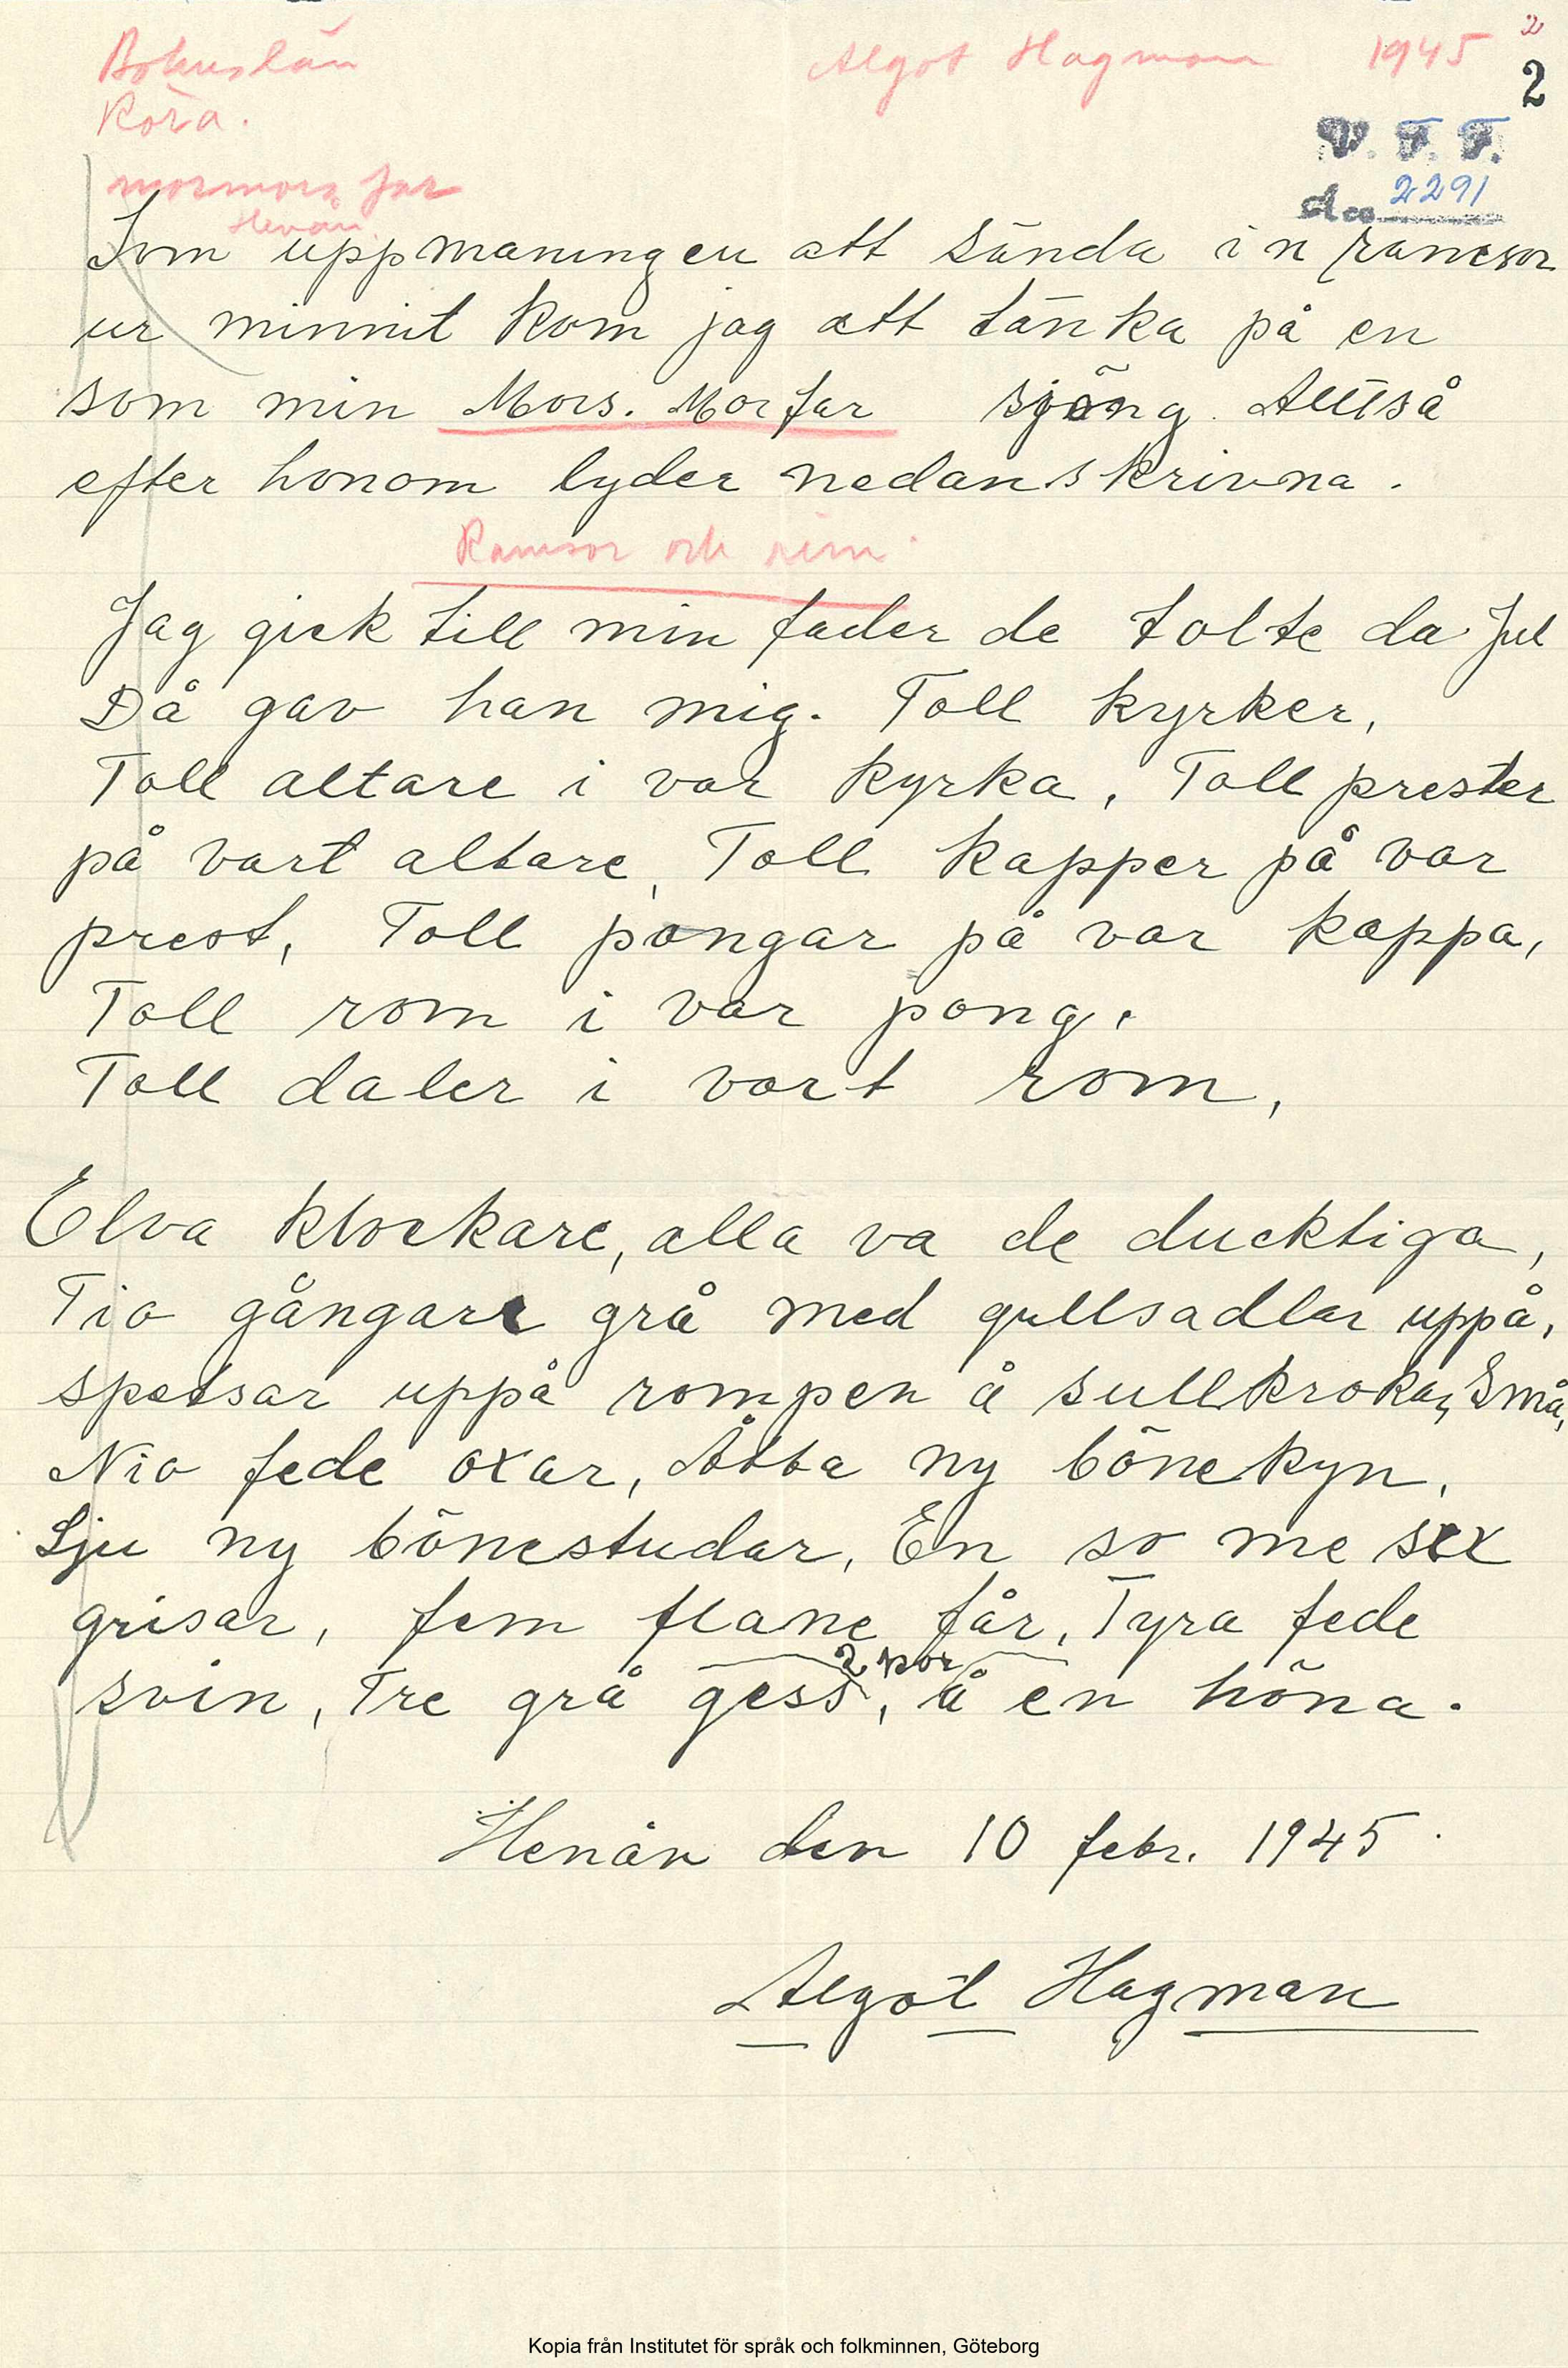 Bohuslän
Algot Hagman 1945
2
2
Röra.
V. F. F.
mormors far
2291
Henån
Som uppmaningen att sända in ramsor
ur minnit kom jag att tänka på en
som min Mors. Morfar sjöng. Alltså
efter honom lyder nedanskrivna.
Ramsor och rim
Jag gick till min fader de tolte da Jul
Då gav han mig. Toll kyrker,
Toll altare i var kyrka, Toll prester
på vart altare, Toll kapper på var
prest, Toll pongar på var kappa,
Toll rom i var pong.
Toll daler i vart rom,
Elva klockare, alla va de ducktiga,
Tio gångare grå med gullsadlar uppå,
spetsar uppå rompen å sullkrokar, Små,
Nio fede oxar, Åtta ny bönekyn,
Sju ny bönestudar, En so me sex
grisar, fem flane får, Fyra fede
2 par
svin, Tre grå gess, å en höna.
Henån den 10 febr. 1945.
Algot Hagman
Kopia från Institutet för språk och folkminnen, Göteborg